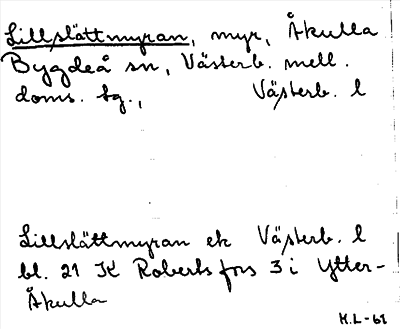 Lillslättmyran, myr, Åkulla
Bygdeå sn, Västerb. mell.
doms. tg., Västerb. l
Lillslättmyran ek Västerb. l
bl. 21 K Robertsfors 3 i Ytter-
Åkulla
H.L-61